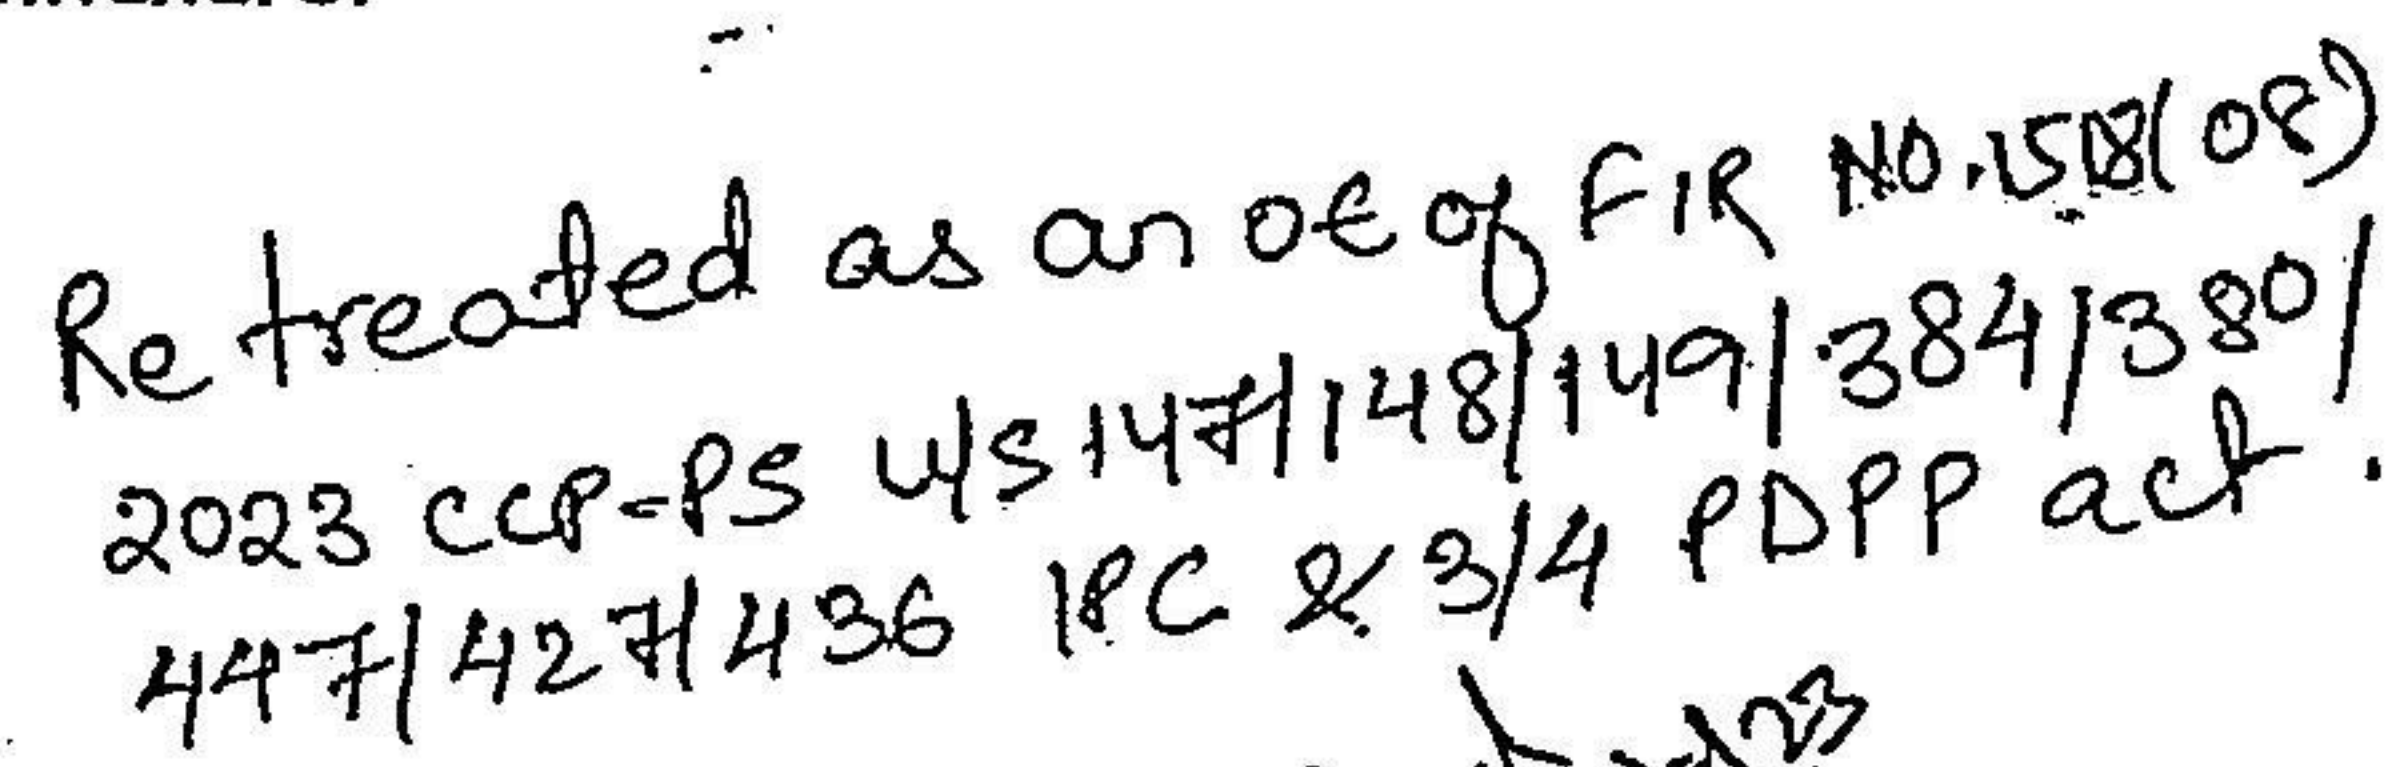 Re treated as an OE of FIR NO. 1518(08)
2023 CCP-PS U/S 147/148/149/384/380/
447/427/436 IPC & 3/4 PDPP act.